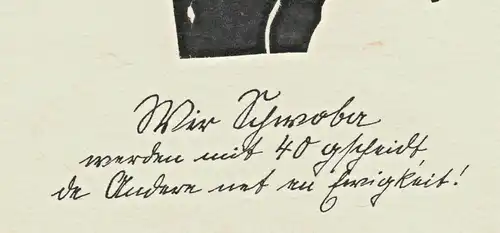 Wir Schwoba
werden mit 40 gscheidt,
de Andere net en Ewigkeit!